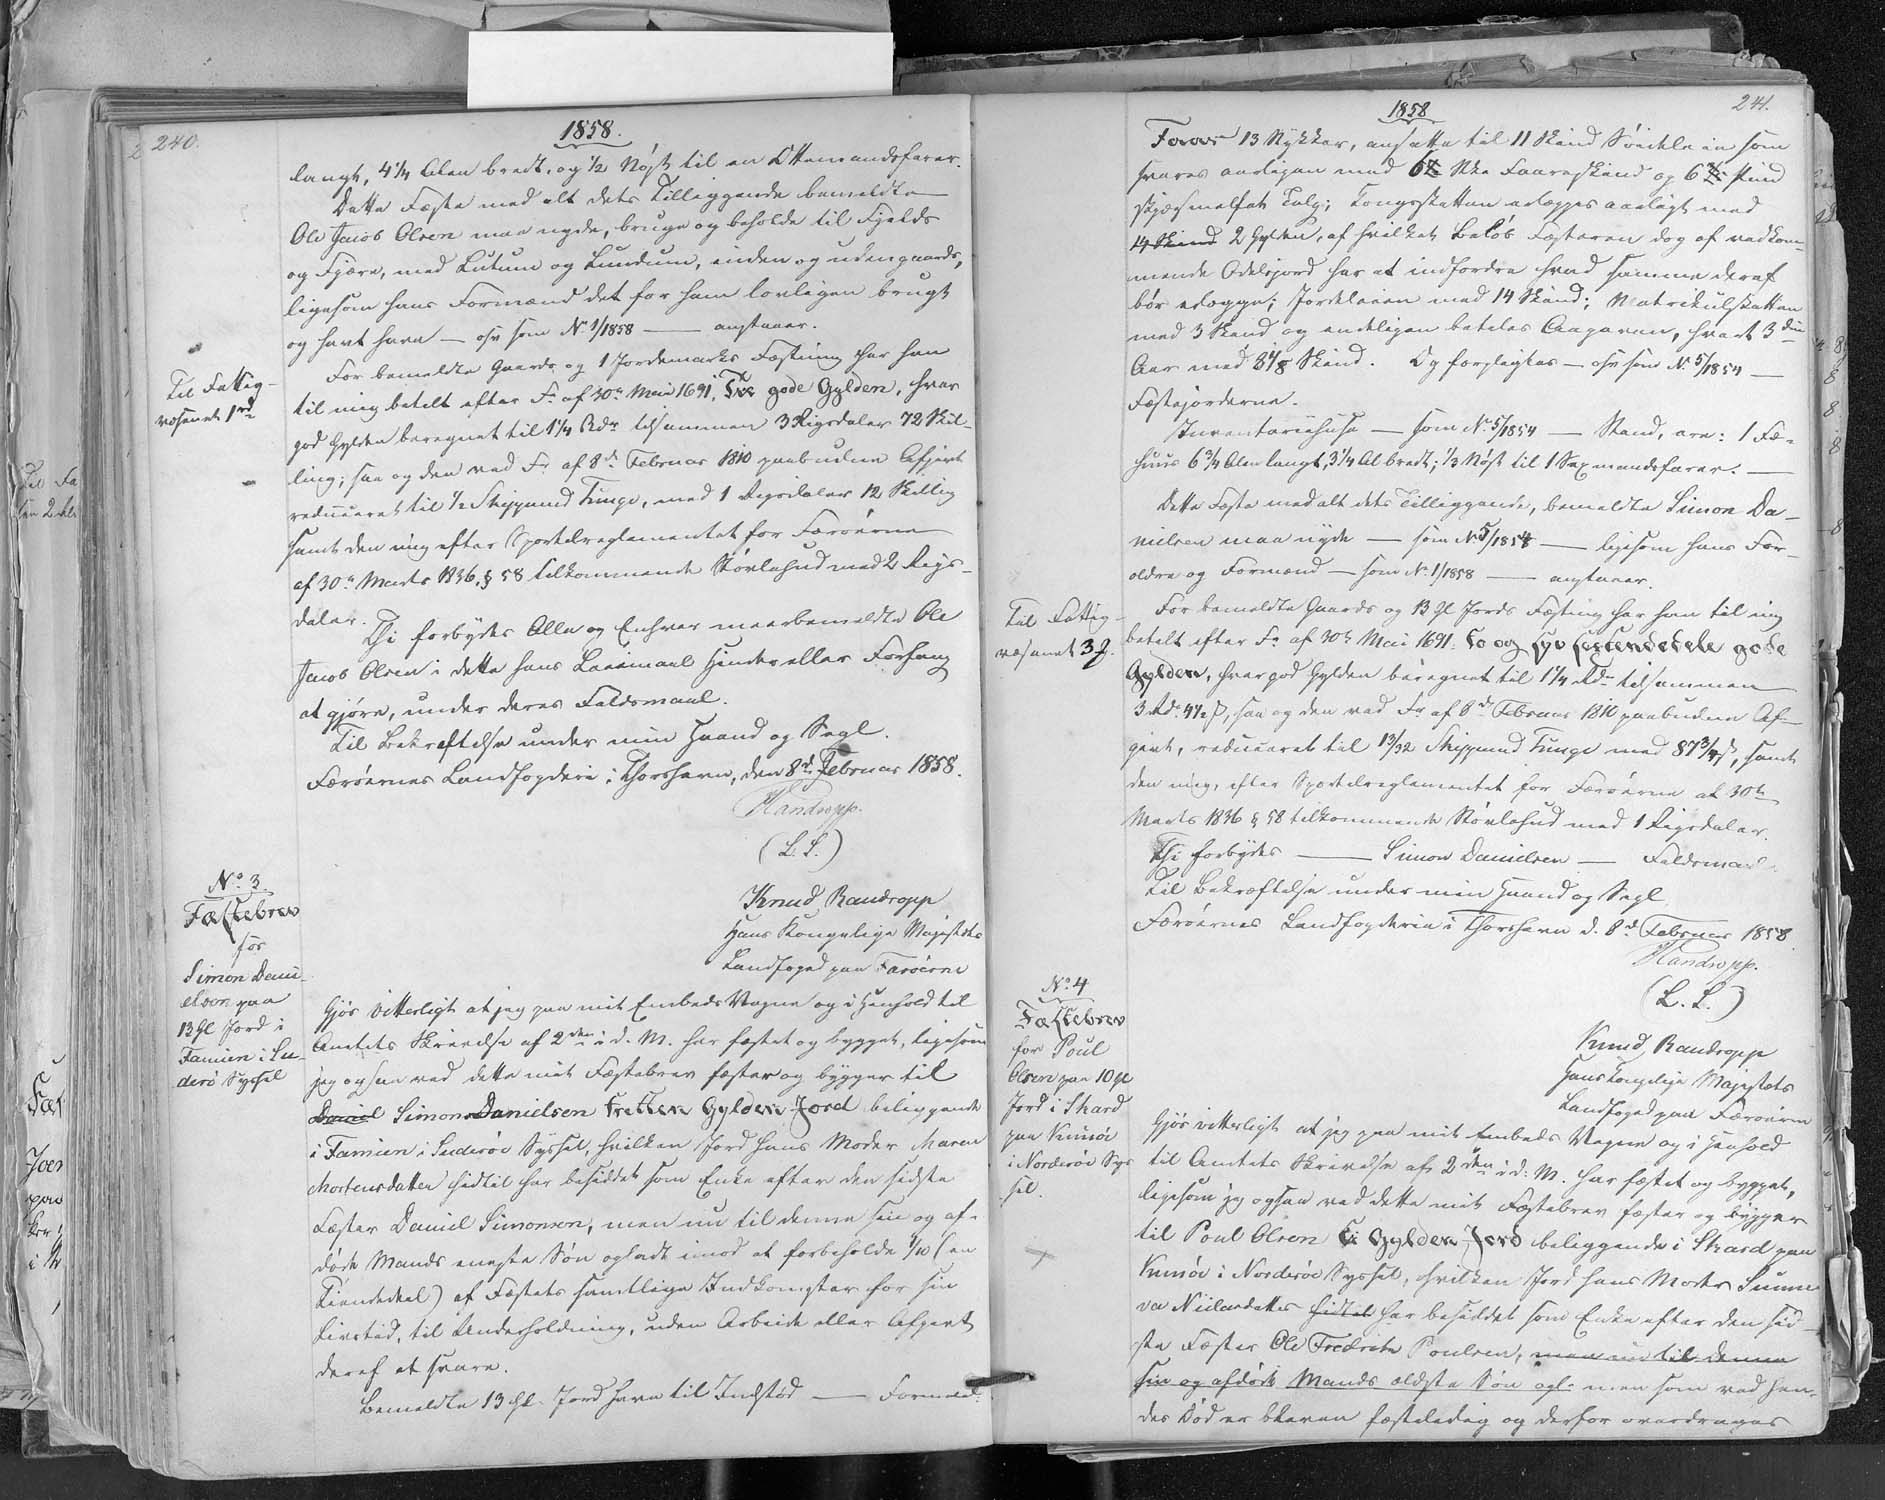 240.
1858.
langt, 4 1/4 Alen bredt, og 1/2 Nøst til en Ottemandsfarer.
Dette Fæste med alt dets Tilliggende bemeldte
Ole Jacob Olsen maa nyde, bruge og beholde til Fjelds
og Fjære, med Lutum og Lundum, inden og udengaards,
ligesom hans Formænd det før ham lovligen brugt
og havt have — osv som No 1/1858 — anstaaer.
For bemeldte Gaards og 1 Jordemarks Fæstning har han
til mig betalt efter Fr. af 30te Mai 1691, Tre gode Gylden, hver
god Gylden beregnet til 1 1/4 Rdr tilsammen 3 Rigsdaler 72 Skil-
ling; saa og den ved Fr. af 8de Februar 1810 paabudne Afgivt
reduceret til 1/2 Skippund Tunge, med 1 Rigsdaler 12 Skilling
samt den mig efter Sportelreglementet for Færøerne
af 30te Marts 1836, § 58 tilkommende Støvlehud med 2 Rigs-
daler.
Til Fattig-
væsenet 1 rd
Thi forbydes Alle og Enhver meerbemeldte Ole
Jacob Olsen i dette hans Leiemaal Hinder eller Forfang
at gjøre, under deres Faldsmaal.
Til Bekræftelse under min Haand og Segl.
Færøernes Landfogderi i Thorshavn, den 8de Februar 1858.
HRandropp.
(L. S.)
No 3
Fæstebrev
for
Simon Dani-
elsen paa
13 Gl Jord i
Famien i Su-
derø Syssel
Knud Randropp
Hans Kongelige Majestæts
Landfoged paa Færøerne
Gjør vitterligt at jeg paa mit Embeds Vegne og i Henhold til
Amtets Skrivelse af 2den i d. M. har fæstet og bygget, ligesom
jeg ogsaa ved dette mit Fæstebrev fæster og bygger til
Daniel Simon Danielsen Tretten Gylden Jord beliggende
i Famien i Suderøe Syssel, hvilken Jord hans Moder Maren
Mortensdatter hidtil har besiddet som Enke efter den sidste
Fæster Daniel Simonsen, men nu til denne sin og af-
døde Mands eneste Søn opladt imod at forbeholde 1/10 (en
Tiendedeel) af Fæstets samtlige Indkomster for sin
Livstid, til Underholdning, uden Arbeide eller Afgivt
deraf at svare.
Bemeldte 13 Gl. Jord have til Indstød —
241.
1858
Faaer 13 Stykker, ansatte til 11 Skind Søidelein som
svares aarligen med Stke Faareskind og 6 Pund
skjærsmeltet Talg; Kongsskatten erlægges aarligt med
14 Skind 2 Gylden, af hvilket Beløb Fæsteren dog af vedkom-
mende Odelsjord har at indfordre hvad samme deraf
bør erlægge; Jordeleien med 14 Skind; Matrikulskatten
med 3 Skind og endeligen betales Aagaven, hvert 3die
Aar med 8 1/8 Skind. Og forpligtes — osv som No 5/1854 —
Fæstejorderne.
Inventariihuse — som No 5/1854 — Stand, ere: 1 Fæ-
huus 6 3/4 Alen langt, 3 1/4 Al. bredt; 1/3 Nøst til 1 Sexmandsfarer. —
Dette Fæste med alt dets Tilliggende, bemeldte Simon Da-
nielsen maa nyde — som No 5/1854 — ligesom hans For-
ældre og Formænd — som No. 1/1858 — anstaaer.
For bemeldte Gaards og 13 Gl Jords Fæstning har han til mig
betalt efter Fr. af 30te Mai 1691. To og syv sextendedele gode
Gylden, hver god Gylden beregnet til 1 1/4 Rdr tilsammen
3 Rdr 4 1/2 ß, saa og den ved Fr. af 8de Februar 1810 paabudne Af-
givt, reduceret til 13/32 Skippund Tunge med 87 3/4 ß, samt
den mig, efter Sportelreglementet for Færøerne af 30te
Marts 1836 § 58 tilkommende Støvlehud med 1 Rigsdaler.
Til Fattig-
væsenet 3
Thi forbydes — Simon Danielsen — Faldsmaal.
Til Bekræftelse under min Haand og Segl
Færøernes Landfogderie i Thorshavn d. 8de Februar 1858.
HRandropp.
(L. S.)
No 4
Fæstebrev
for Poul
Olsen paa 10 Gl
Jord i Skard
paa Kunøe
i Norderøe Sys
sel.
Knud Randropp
Hans Kongelige Majestæts
Landfoged paa Færøerne
Gjør vitterligt at jeg paa mit Embeds Vegne og i Henhold
til Amtets Skrivelse af 2den i d. M. har fæstet og bygget,
ligesom jeg ogsaa ved dette mit Fæstebrev fæster og bygger
til Poul Olsen Ti Gylden Jord beliggende i Skard paa
Kunøe i Norderøe Syssel, hvilken Jord hans Moder Sunne
va Nielsdatter hidtil har besiddet som Enke efter den sid-
ste Fæster Ole Fredrik Poulsen, men nu til denne
sin og afdøde Mands ældste Søn opl. men som ved hen-
des Død er bleven fæsteledig og derfor overdrages